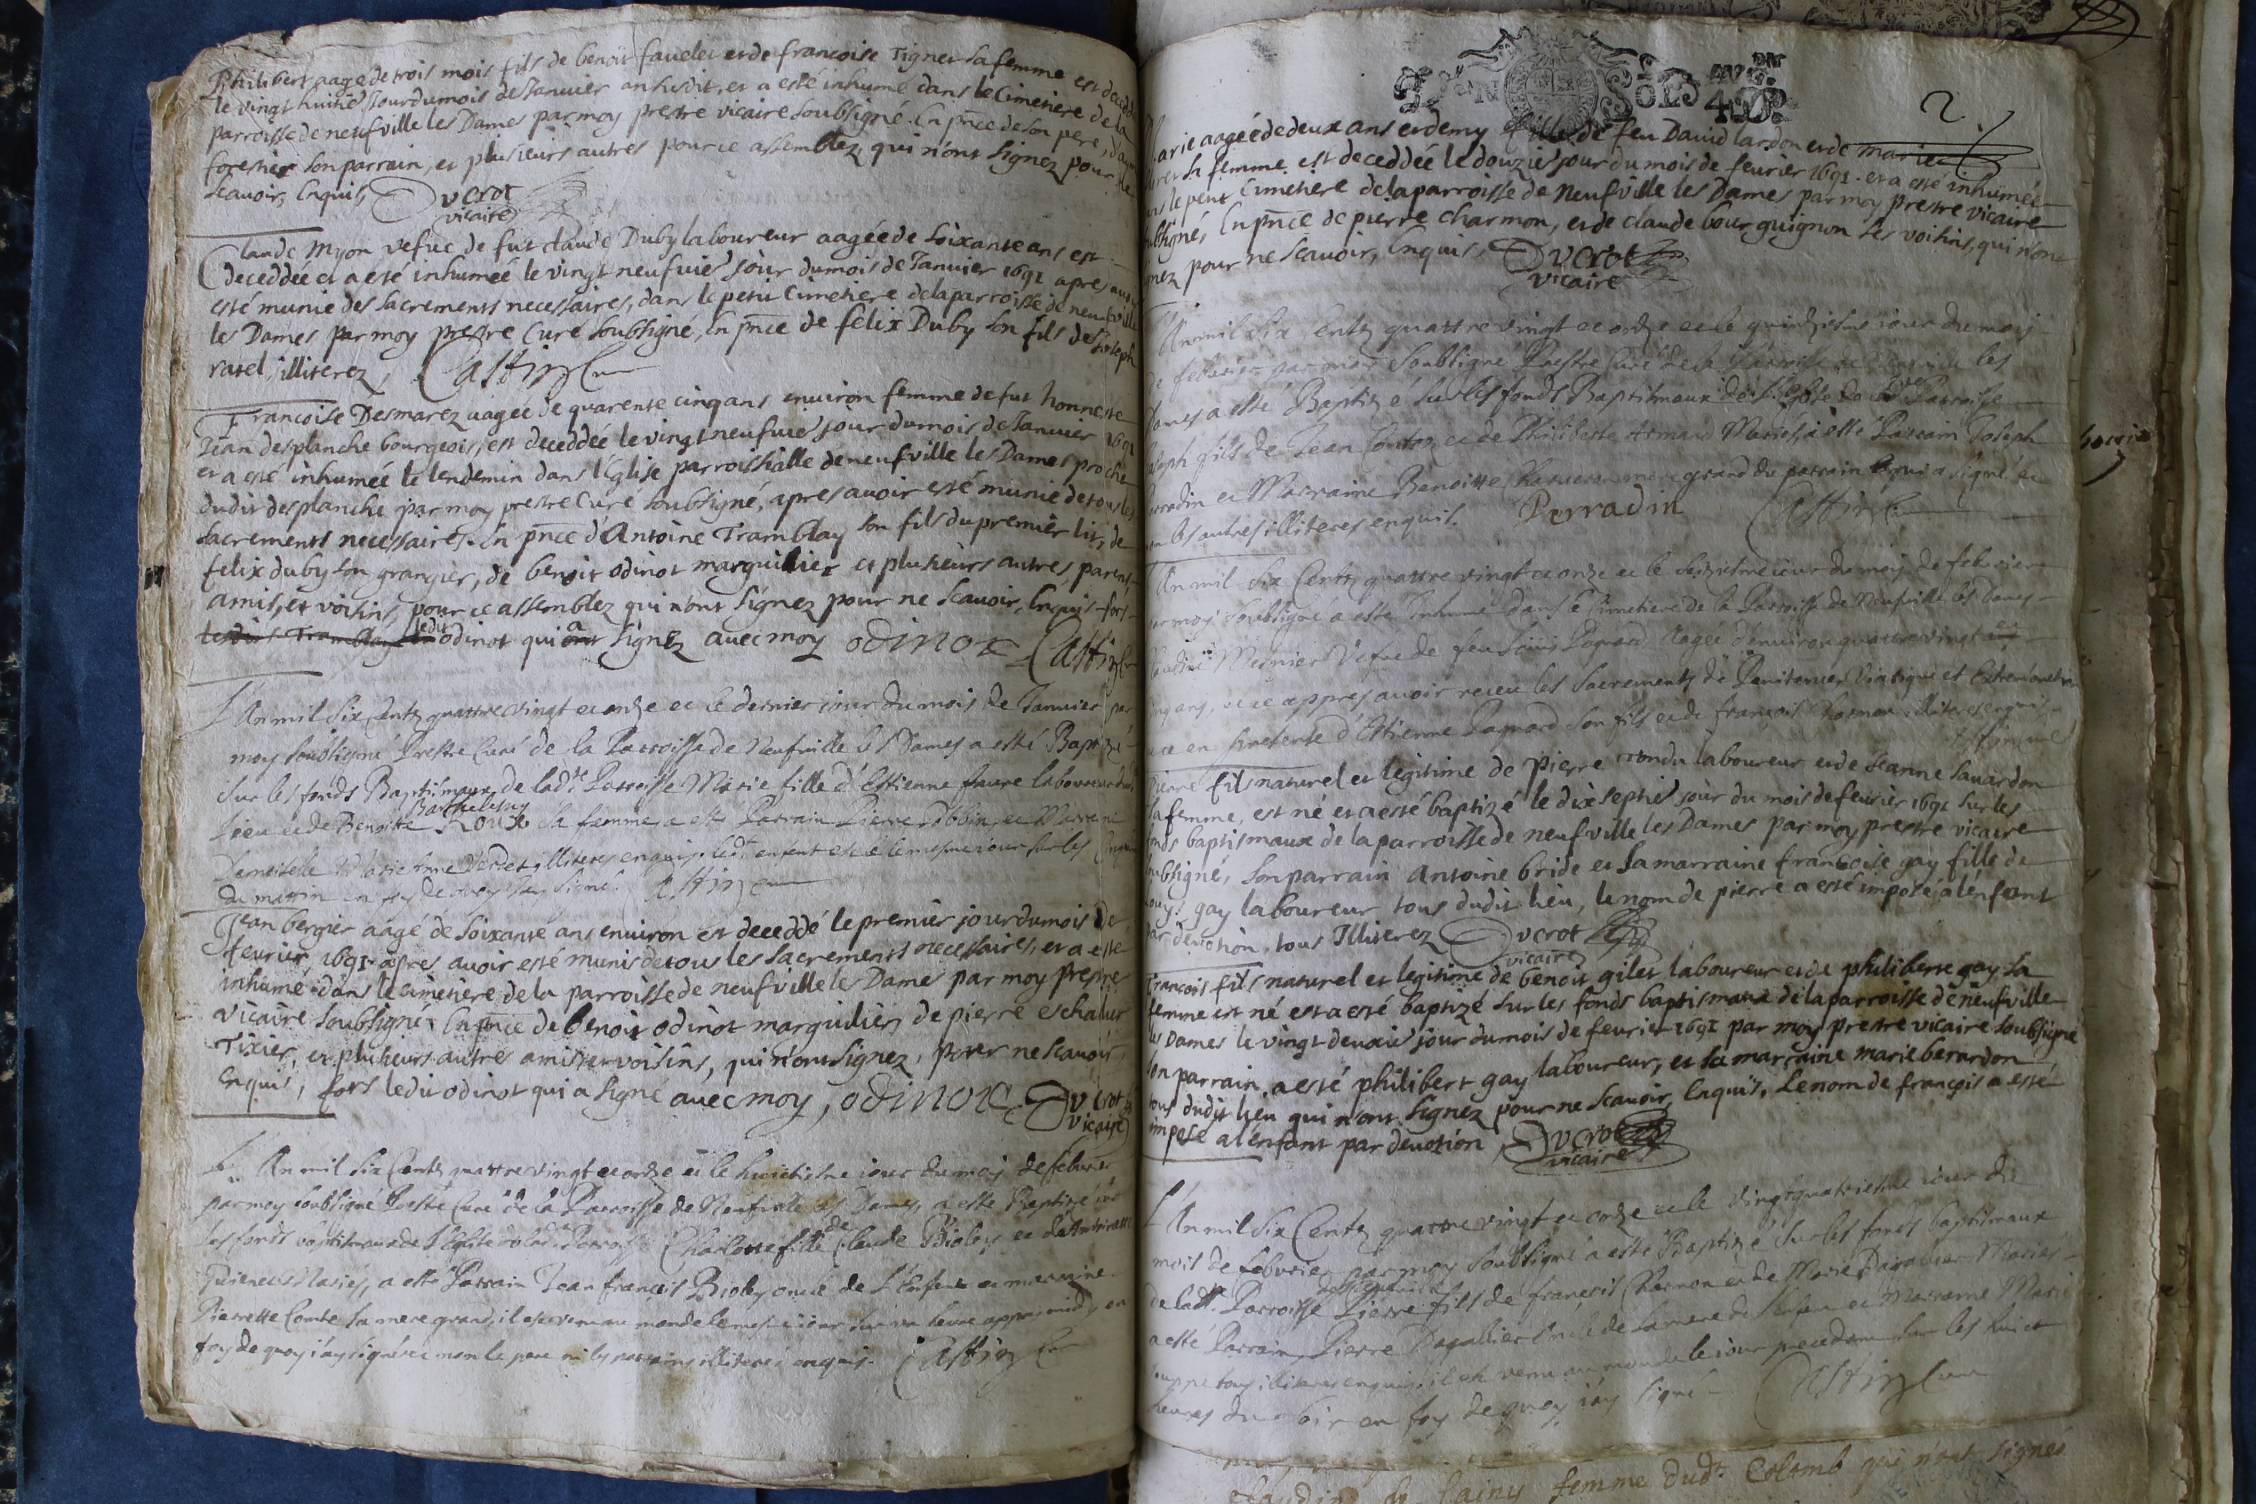 Philibert aage de trois mois fils de benoit favelet et de francoise Tignet sa femme est decedé
le vingt huitie jour du mois de Janvier an susdit, et a esté inhumé dans le Cimetiere de la
parroisse de neufville les Dames par moy prestre vicaire soubsigné. En pnce de son pere,
forestier son parrain, et plusieurs autres pour ce assemblez, qui n'ont signez pour ne
scavoir, Enquis, Ducrot
vicaire
Claude Myon vefue de fut claude Duby laboureur aagée de soixante ans est
deceddée et a esté inhumée le vingt neufvie jour du mois de Janvier 1691 apres avoir
esté munie des sacrements necessaires, dans le petit Cimetiere de la parroisse de neufville
les Dames par moy prestre Curé soubsigné, En pnce de felix Duby son fils de Joseph
ratel, illiterez, Castin Cur
Francoise Desmarez aagée de quarente cinq ans environ femme de fut honneste
Jean desplanche bourgeois, est deceddée le vingt neufvie jour du mois de Janvier 1691
et a esté inhumée le lendemin dans l'Eglise parroissialle de neufville les Dames proche
dudit desplanche par moy prestre Curé soubsigné, apres avoir esté munie de tous les
sacrements necessaires. En pnce d'Antoine Tramblay son fils du premier lit, de
felix duby son grangier, de benoit odinot marguillier et plusieurs autres parents
amis, et voisins, pour ce assemblez qui n'ont signez pour ne scavoir, Enquis fors
ledit odinot qui a signez avec moy odinot Castin Cur
L'An mil six Centz quattre vingt et onze et le dernier iour du mois de Janvier par
moy soubsigné Prestre Curé de la Parroisse de Neufville les Dames a esté Baptizé
sur les fonds Baptismaux de ladte Parroisse Marie fille d'Estienne faure laboureur dudit
Lieu et de Benoitte Barthelemy Roux sa femme a esté Parrain Pierre Robbin, et Marraine
Damoiselle Marie Anne illiteres enquis. ledt enfant est né le mesme iour sur les
du mattin en foy de quoy i'ay signé. Castin Cur
Jean bergier aagé de soixante ans environ est deceddé le premier jour du mois de
fevrier, 1691 apres avoir esté munis de tous les sacrements necessaires, et a esté
inhumé dans le cimetiere de la parroisse de neufville les Dames par moy prestre
vicaire soubsigné, En pnce de benoit odinot marguilier, de pierre eschalur
Tixier, et plusieurs autres amis et voisins, qui n'ont signez, pour ne scavoir,
Enquis, fors ledit odinot qui a signé avec moy, odinot Ducrot
vicaire
L'An mil six Centz quattre vingt et onze et le huictiesme iour du moy de febvrier
par moy soubsigné Prestre Curé de la Parroisse de Neufville les Dames, a esté Baptizé sur
les fonds baptismaux de l'Eglise de ladte Parroisse Charlotte fille de Claude Bioley et
Mariés, a esté Parrain Jean francois Bioley oncle de L'Enfant et marraine
Pierrette Comte sa mere grand, il est venu au monde le mesme iour sur une heure appres midy en
foy de quoy i'ay signé et non le pere ni les parrains illiteres enquis. Castin Cur
2
Marie aagée de deux ans et demy fille de feu David lardon et de marie
sa femme est deceddée le douzie jour du mois de fevrier 1691. et a esté inhumée
dans le petit Cimetiere de la parroisse de Neufville les Dames par moy prestre vicaire
soubsigné, En pnce de pierre Charmon, et de claude bourguignon ses voisins, qui n'ont
signez pour ne scavoir, Enquis, Ducrot
vicaire
L'An mil six Centz quattre vingt et onze et le quinziesme iour du moy
de febvrier par moy soubsigné Prestre Curé de la Parroisse de Neufville les
Dames a esté Baptizé sur les fonds Baptismaux de l'Eglise de ladte Parroisse
Joseph fils de Jean Conton et de Philiberte Armand Mariés, a esté Parrain Joseph
Perradin et Marraine Benoitte mere grand du parrain qui a signé et
non les autres illiteres enquis. Perradin Castin C
L'An mil six Centz quattre vingt et onze et le seiziesme iour du moy de febvrier
par moy soubsigné a esté Inhumé dans le Cimetiere de la Parroisse de Neufville les Dames
Claudine Meunier Vefue de feu Louis Pagnard Aagée d'environ quattre vingt
cinq ans, et ce appres avoir receu les Sacrements de Penitence Viatique et Extremonction
en presence d'Estienne Pagnard son fils et de francois illiteres enquis
Castin Cur
Pierre fils naturel et legitime de pierre rondu laboureur et de Jeanne savardon
sa femme, est né et a esté baptizé le dix septie jour du mois de fevrier 1691 sur les
fonds baptismaux de la parroisse de neufville les Dames par moy prestre vicaire
soubsigné, son parrain Antoine bride et sa marraine francoise gay fille de
Louys gay laboureur tous dudit lieu, le nom de pierre a esté imposé a l'enfant
par devotion, tous Illiterez Ducrot
vicaire
francois fils naturel et legitime de benoit gilet laboureur et de philiberte gay sa
femme est né est a esté baptizé sur les fonds baptismaux de la parroisse de neufville
les Dames le vingt deuxie jour du mois de fevrier 1691 par moy prestre vicaire soubsigné
son parrain a esté philibert gay laboureur, et sa marraine marie berardon
tous dudit lieu qui n'ont signez pour ne scavoir, Enquis, Le nom de francois a esté
imposé a l'enfant par devotion, Ducrot
vicaire
L'An mil six Centz quattre vingt et onze et le vingt quatriesme iour du
mois de febvrier par moy soubsigné a esté Baptizé sur les fonds baptismaux
de ladte Parroisse Pierre fils de francois Charmon et de Marie Dagallier Mariés
a esté Parrain Pierre Dagallier Oncle de la mere de l'enfan et Marraine Marie
tous illiteres enquis, il est venu au monde le iour precedent sur les huict
heures du soir en foy de quoy i'ay signé Castin Cur
femme dudt Colomb qui n'ont signés